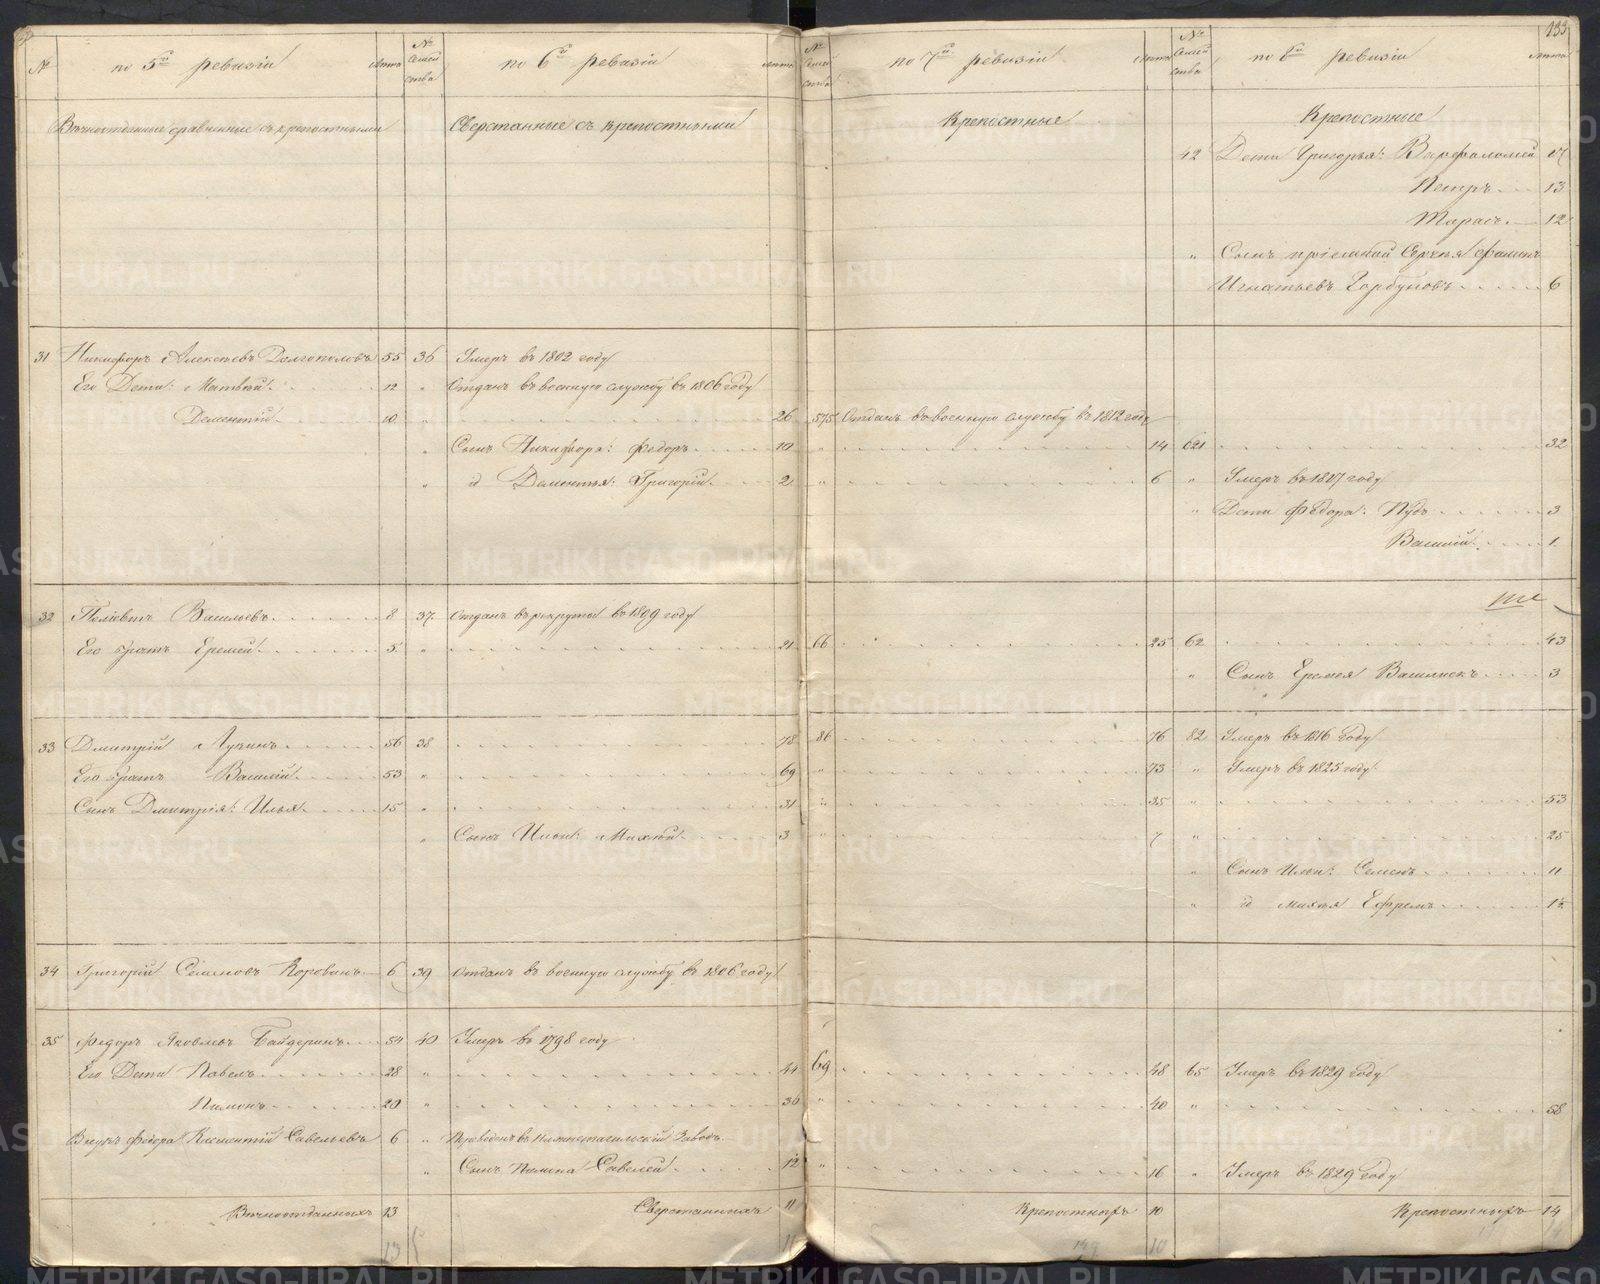 133
№ по 5й ревизіи Лета № Семейства по 6й ревизіи Лета № Семейства по 7й ревизіи Лета № Семейства по 8й ревизіи Лета
Вечноотданные сравненные съ крепостными Сверстанные съ крепостными Крепостные Крепостные
42 Дети Григорья: Варфаломей
Петръ 13
Тарасъ 12
" Сынъ пріемной Сергея
Игнатьевъ Горбуновъ 6
31 Никифоръ Алексеевъ Долгополовъ 55 36 Умеръ въ 1802 году
Его Дети: Матвей 12 " Отданъ въ военную службу въ 1806 году
Дементій 10 " 26 575 Отданъ въ военную службу въ 1812 году
" Сынъ Никифора: Федоръ 10 " 14 621 32
" id Дементья: Григорій 2 " 6 " Умеръ въ 1817 году
" Дети Федора: Пудъ 3
Василій 1
32 Васильевъ 8 37 Отданъ въ рекруты въ 1809 году
Его братъ Еремей 5 " 21 66 25 62 43
" Сынъ Еремея 3
33 Дмитрій Лукинъ 56 38 78 86 76 82 Умеръ въ 1816 году
Его братъ Василій 53 " 69 " 73 " Умеръ въ 1825 году
Сынъ Дмитрія: Илья 15 " 31 " 35 " 53
" Сынъ Ильи: Михей 3 " 7 " 25
" Сынъ Ильи: Семенъ 11
" id Михея Ефремъ
34 Григорій Семеновъ Коровинъ 6 39 Отданъ въ военную службу въ 1806 году
35 Федоръ Яковлевъ Байдеринъ 54 40 Умеръ въ 1798 году
Его Дети Павелъ 28 " 44 69 48 65 Умеръ въ 1829 году
Пименъ 20 " 36 " 40 " 58
Внукъ Федора Клементій Савельевъ 6 " Переведенъ въ Нижнетагильскій Заводъ
" Сынъ Пимина Савелей 12 " 16 " Умеръ въ 1829 году
Вечноотданныхъ 13 Сверстанныхъ 11 Крепостныхъ 10 Крепостныхъ 14
13 11 10
METRIKI.GASO-URAL.RU